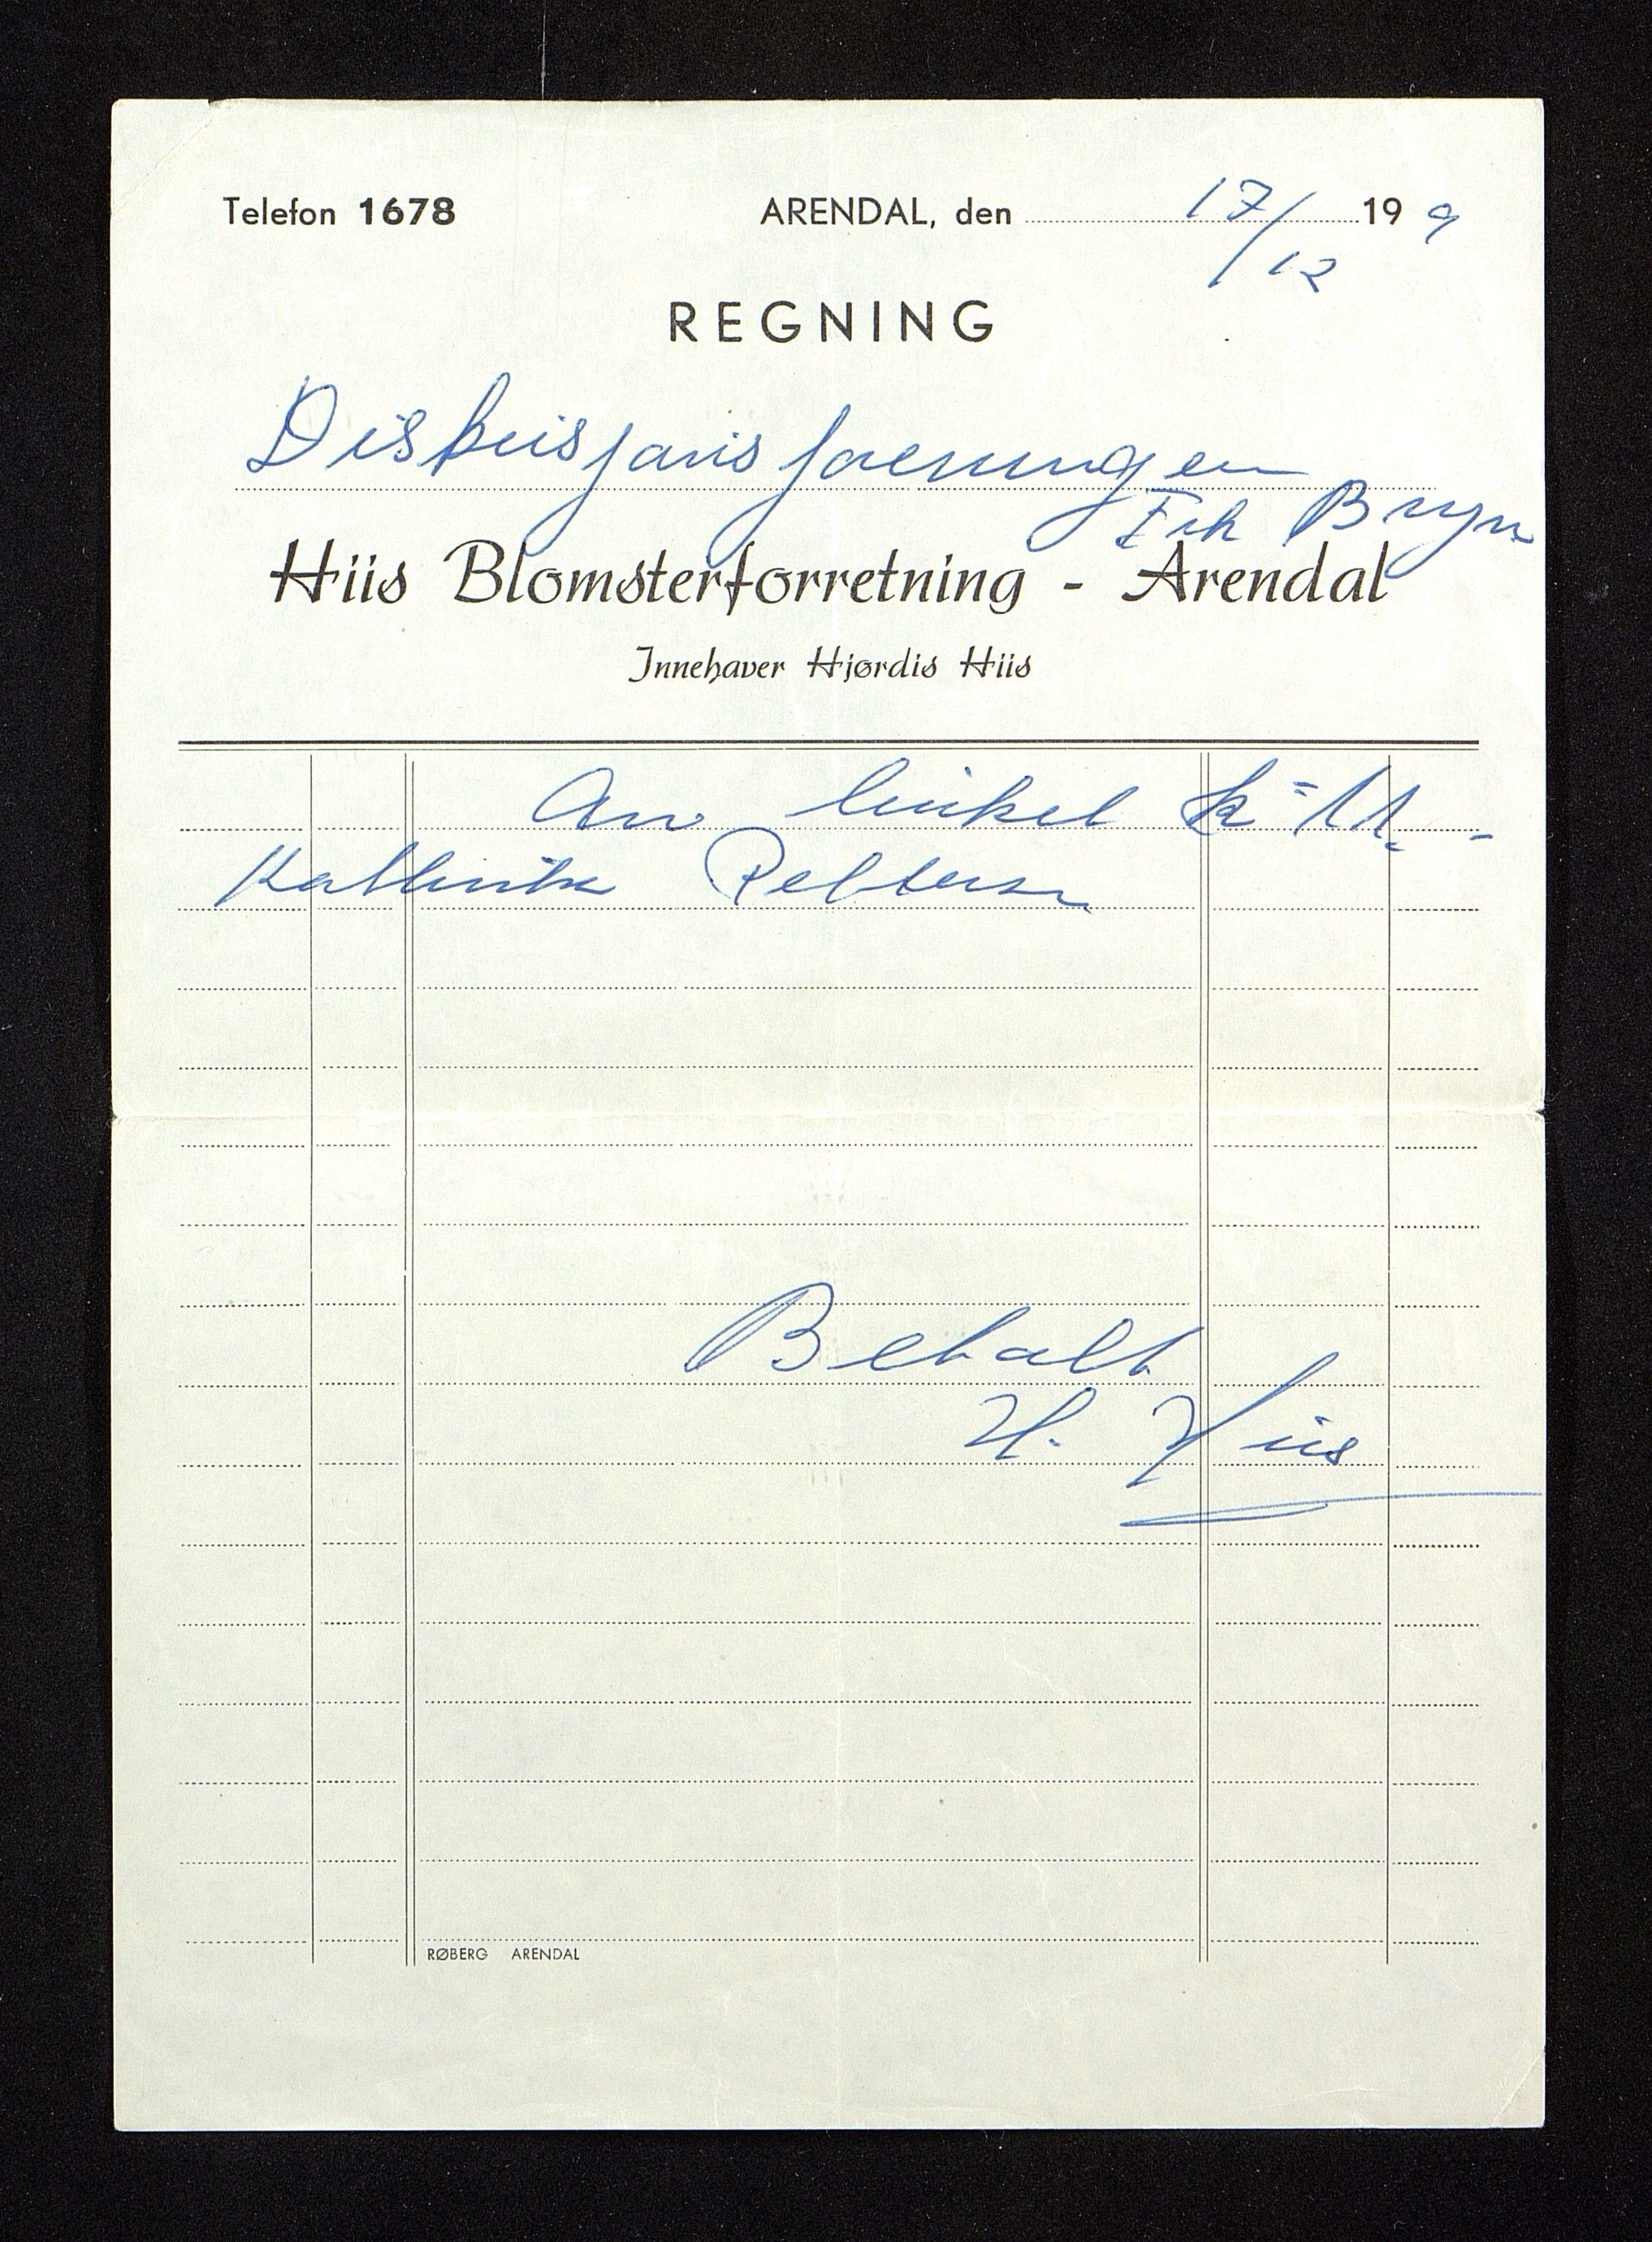 Telefon 1678 ARENDAL, den 17/12 19 9
REGNING
Diskusjonsforeningen
Frk Bryn
Hiis Blomsterforretning - Arendal
Innehaver Hjørdis Hiis
An buket kr 11.-
Kathrine Pettersen
Betalt
H. Hiis
RØBERG ARENDAL